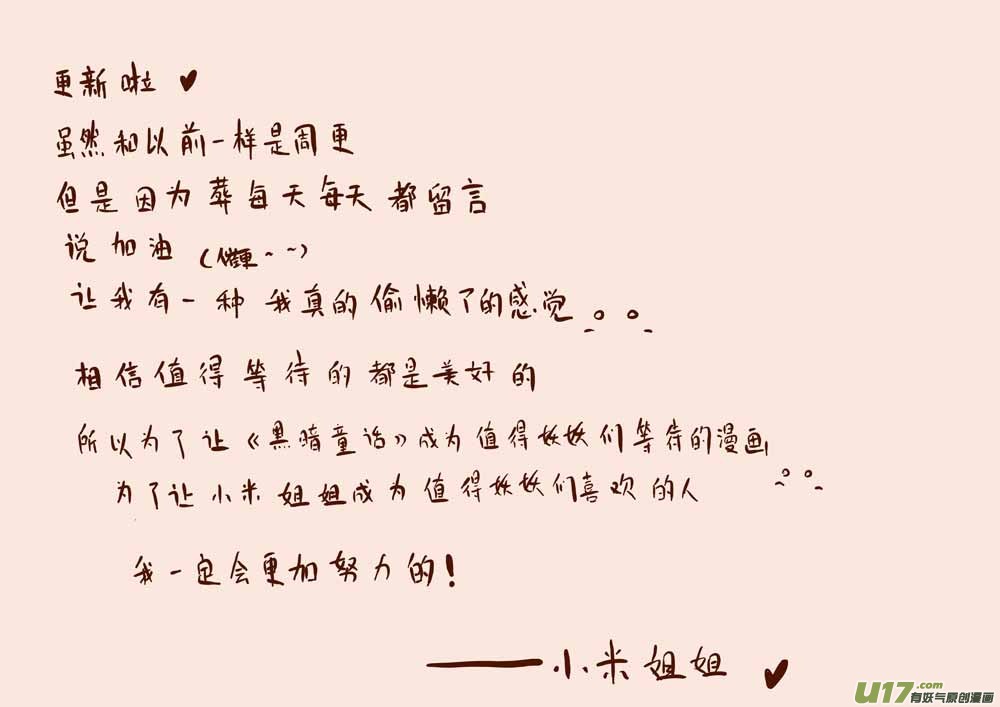 更新啦 ♥
虽然和以前一样是周更
但是因为葬每天每天都留言
说加油 (催更~~)
让我有一种我真的偷懒了的感觉
相信值得等待的都是美好的
所以为了让《黑暗童话》成为值得妖妖们等待的漫画
为了让小米姐姐成为值得妖妖们喜欢的人
我一定会更加努力的!
——小米姐姐 ♥
U17.com
有妖气原创漫画